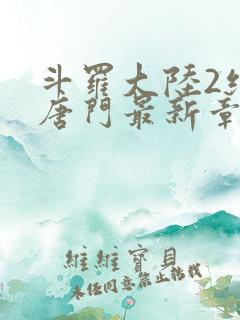 斗羅大陸2絕
唐門最新章
維維寶貝
未經同意禁止轉載